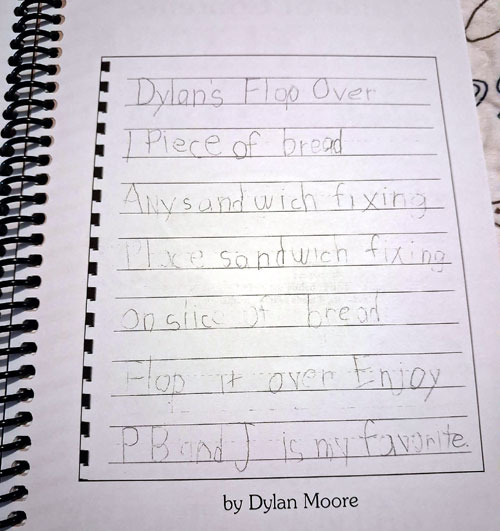 Dylan's Flop Over
1 Piece of bread
Any sandwich fixing
Place sandwich fixing
on slice of bread
Flop it over Enjoy
PB and J is my favorite.
by Dylan Moore